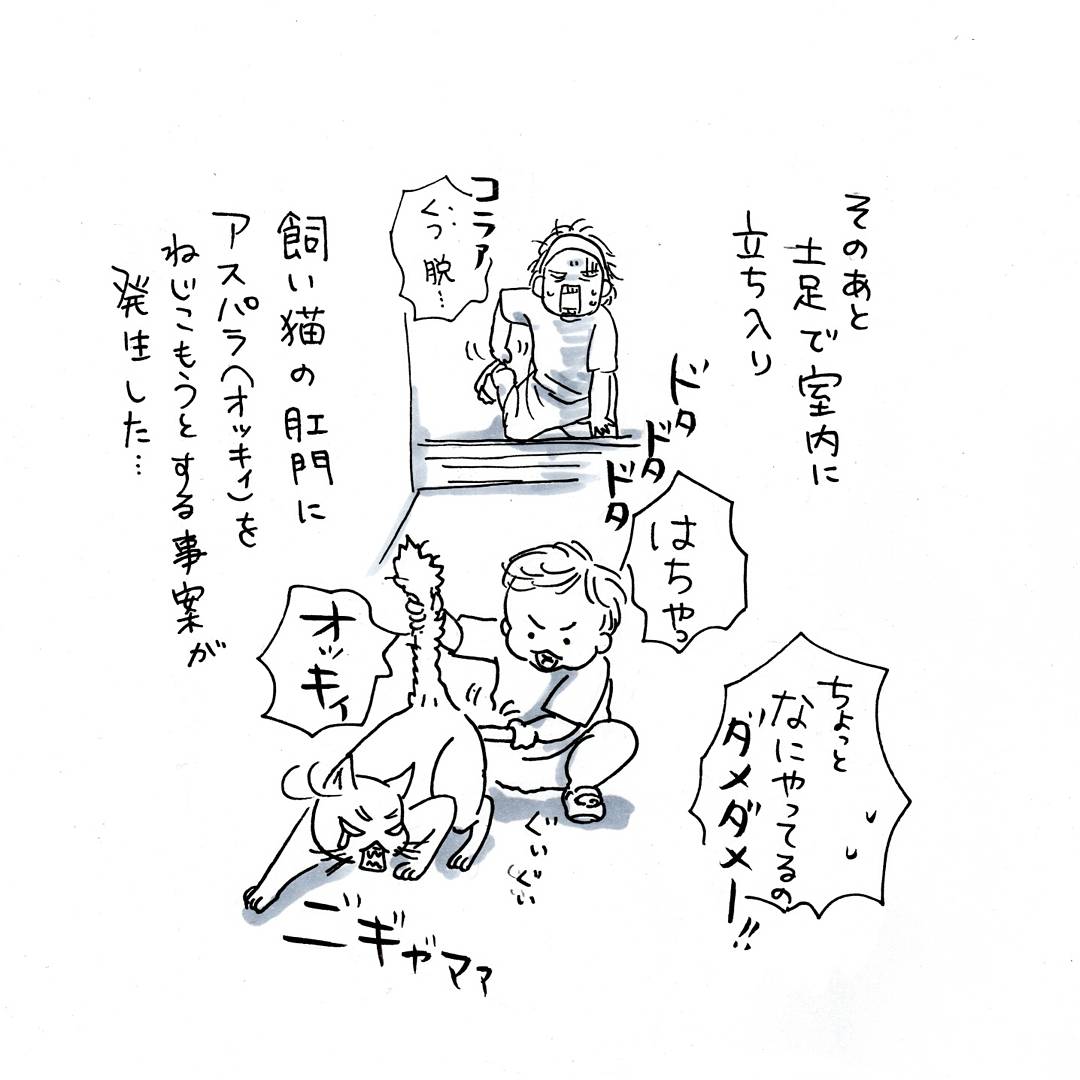 そのあと
土足で室内に
立ち入り
コラァ
くつ
脱…
ドタ
ドタ
ドタ
はちゃっ
飼い猫の肛門に
アスパラ(オッキィ)を
ねじこもうとする事案が
発生した…
オッキィ
ちょっと
なにやってるの
ダメダメー!!
ぐいぐい
ニギャマァ